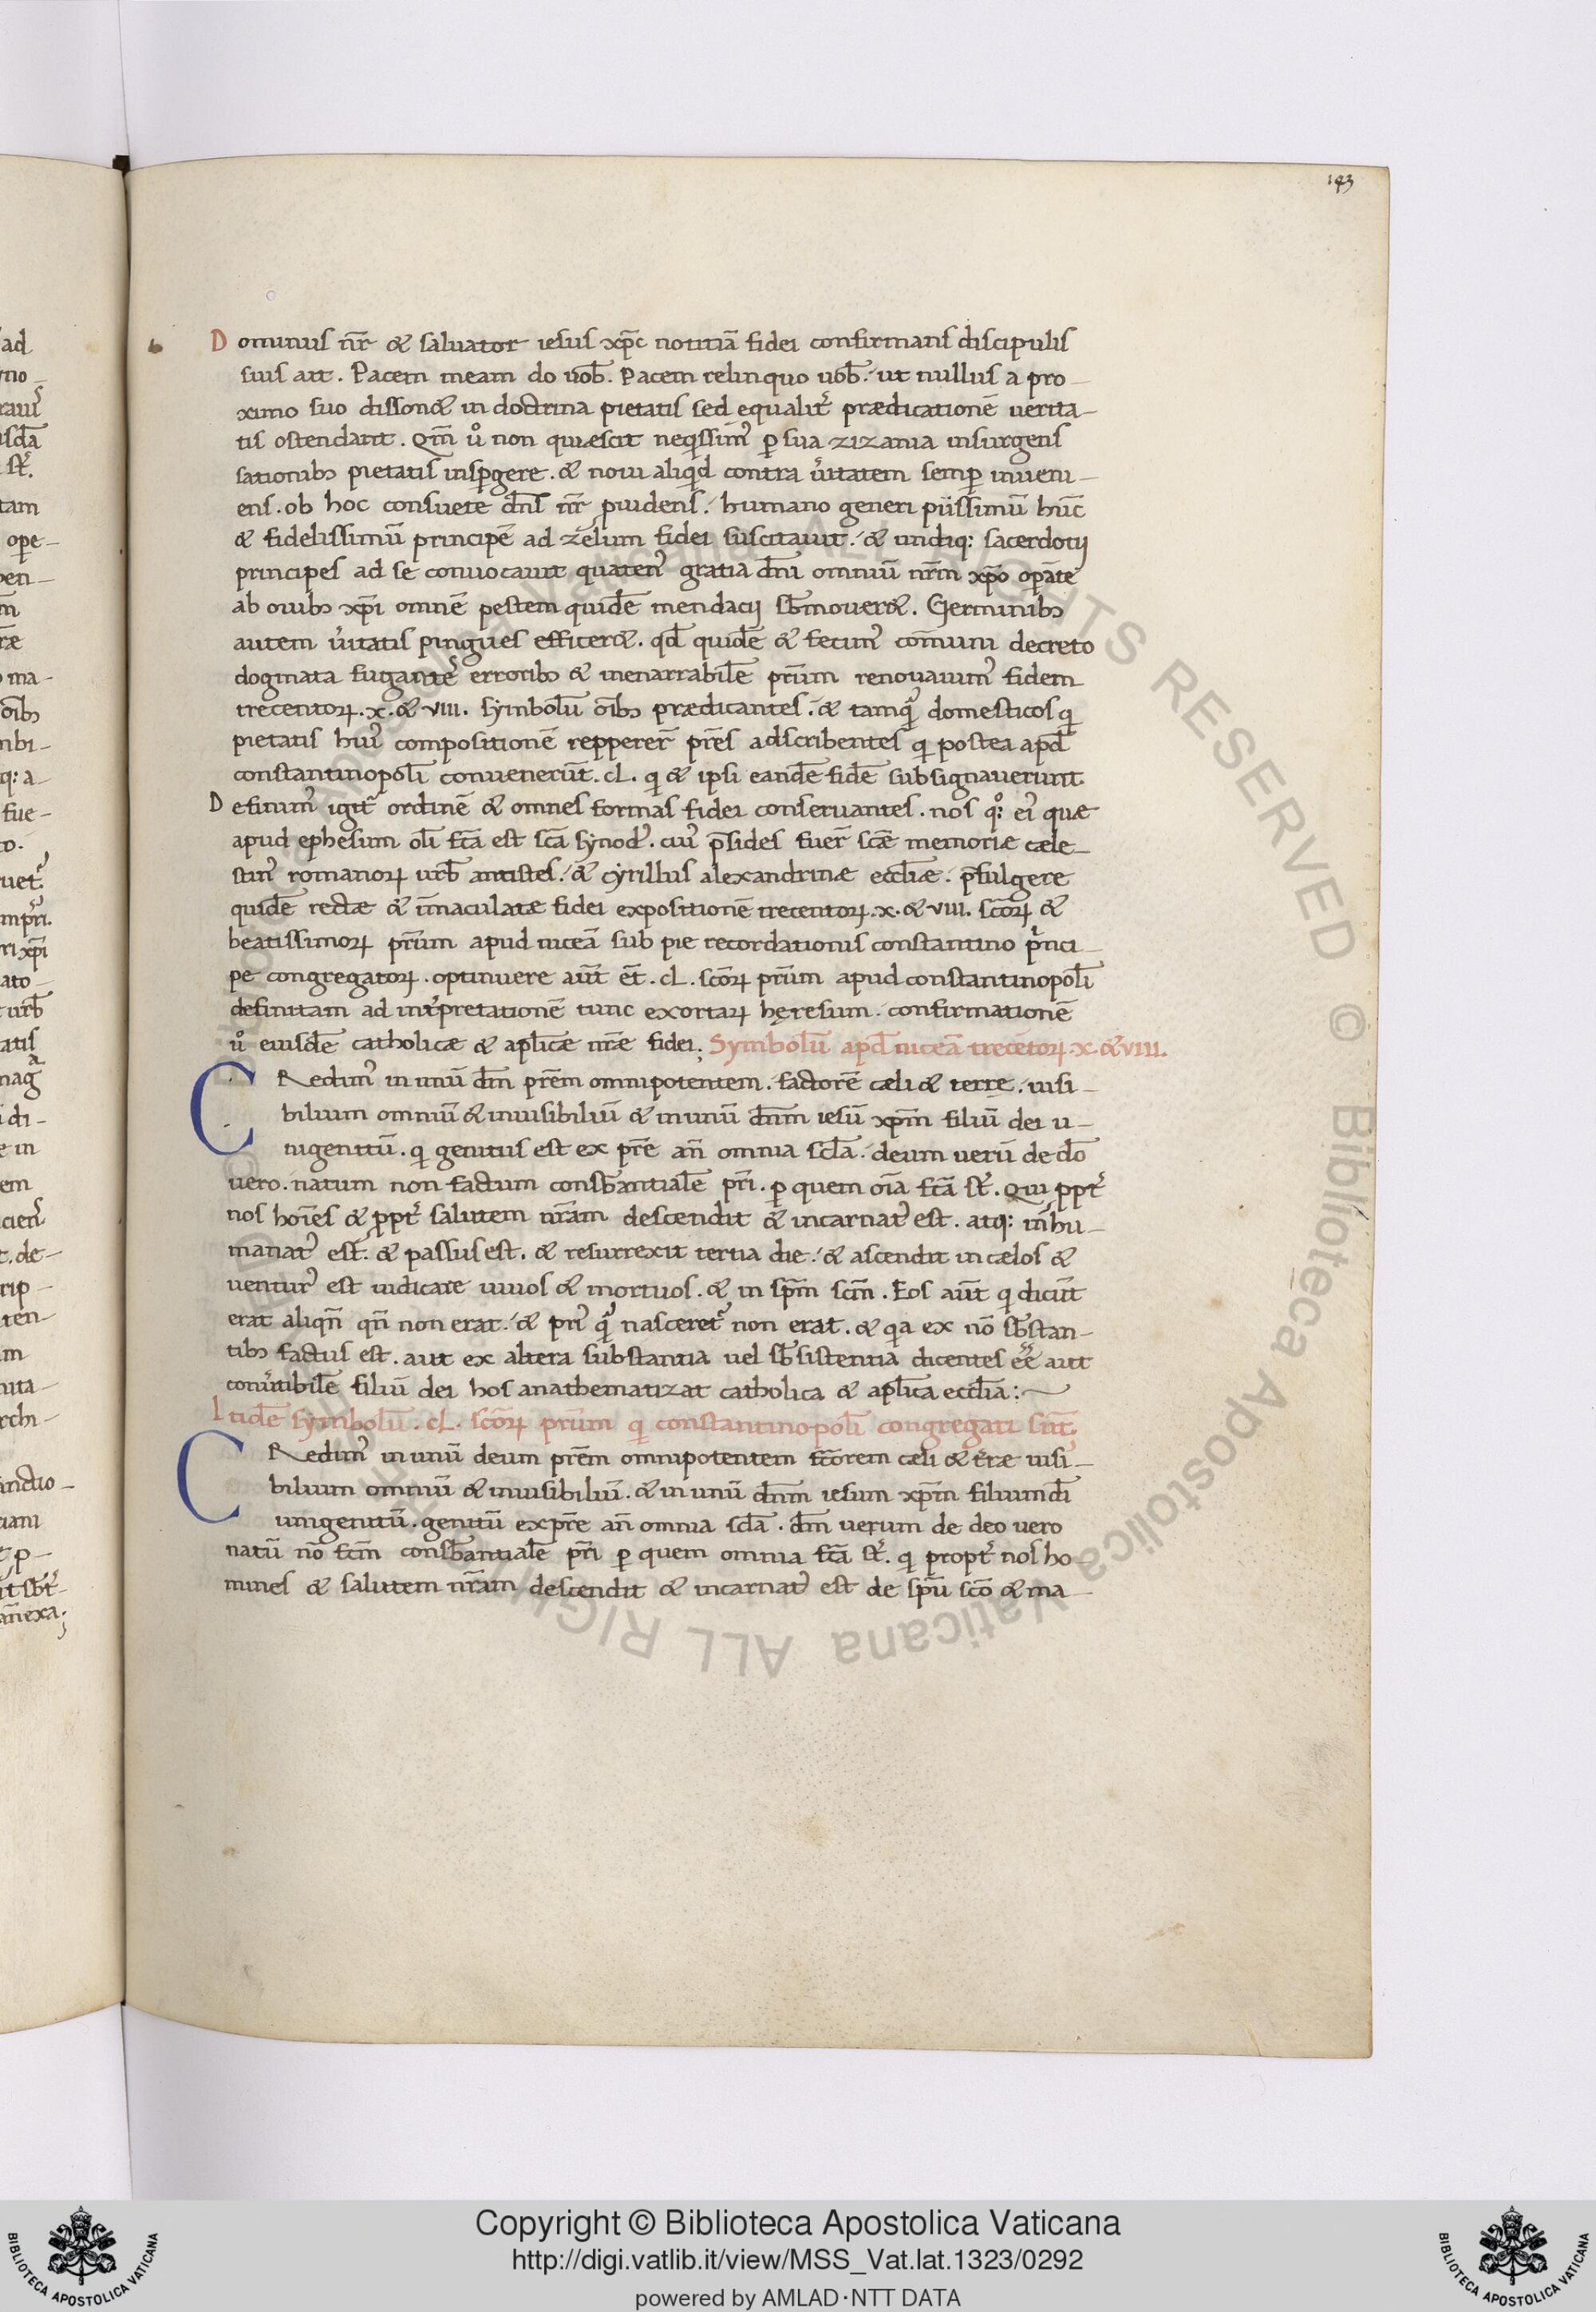 143
Dominus nr̃ & saluator iesus xp̃c notitiã fidei confirmans discipulis
suis ait. Pacem meam do uob̃. Pacem relinquo uob̃. ut nullus a pro-
ximo suo disson& in doctrina pietatis sed equalit̉ prædicationẽ uerita-
tis ostendant. Qm̃ u̾ non quiescit neqissim᾽ ꝑ sua zizania insurgens
sationibꝫ pietatis insꝑgere. & noui aliqid contra u̾itatem semꝑ inueni-
ens. ob hoc consuete dñs nr̃ prudens. humano generi piissimũ hũc
& fidelissimũ principẽ ad zelum fidei suscitauit. & undiq: sacerdotij
principes ad se conuocauit quaten᾽ gratia dñi omniũ nr̃m xp̃o oꝑãte
ab ouibꝫ xp̃i omnẽ pestem quidẽ mendacij sb̃mouer&. Germinibꝫ
autem u̾itatis pingues efficer&. qd̃ quidẽ & fecim᾽ com̃uni decreto
dogmata fugantẽ erroribꝫ & inenarrabilẽ pr̃um renouauim᾽ fidem
trecentoꝝ.x.&VIII. symbolũ oĩbꝫ prædicantes. & tamq̃ domesticos qi
pietatis hui᾽ compositionẽ reppererr̃ pr̃es adscribentes qi postea apd̃
constantinopolĩ conuenerũt. cL. qi & ipsi eandẽ fidẽ subsignauerunt.
Definim᾽ igit̉ ordinẽ & omnes formas fidei conseruantes. nos q̊: ei᾽ quæ
apud ephesum olĩ fc̃a est sc̃a synod᾽. cui᾽ p̃sides fuer̃ sc̃æ memoriæ cæle-
stin᾽ romanoꝝ urb̃ antistes. & cyrillus alexandrinæ eccl̃iæ. p̃fulgere
quidẽ rectæ & im̃aculatæ fidei expositionẽ trecentoꝝ.x.&VIII. sc̃oꝝ &
beatissimoꝝ pr̃um apud niceã sub pie recordationis constantino p̉nci-
pe congregatoꝝ. optinuere aut̃ et̃. cL. sc̃oꝝ pr̃um apud constantinopolĩ
definitam ad int̉pretationẽ tunc exortaꝝ hęresum. confirmationẽ
u̾ eiusdẽ catholicæ & apl̃icæ nr̃æ fidei; Symbolũ apd̃ niceã trecẽtoꝝ.x.&VIII.
CRedim᾽ in unũ dm̃ pr̃em omnipotentem. factorẽ cæli & terre. uisi-
bilium omniũ & inuisibiliũ & in unũ dñm iesũ xp̃m filiũ dei u-
nigenitũ. qi genitus est ex pr̃e an̄ omnia scl̃a. deum uerũ de dõ
uero. natum non factum consb̃antialẽ pr̃i. ꝑ quem oĩa fc̃a st̉. Qui ppt̉
nos hoĩes & ppt̉ salutem nr̃am descendit & incarnat᾽ est. atq: inhu-
manat᾽ est. & passus est. & resurrexit tertia die. & ascendit in cælos &
uentur᾽ est iudicare uiuos & mortuos. & in sp̃m sc̃m. Eos aut̃ qi dicũt
erat aliqñ qñ non erat. & pri᾽ q̃ nasceret̉ non erat. & qa ex nõ sb̃stan-
tibꝫ factus est. aut ex altera substantia uel sb̃sistentia dicentes eẽ aut
conu̾tibilẽ filiũ dei hos anathematizat catholica & apl̃ica eccl̃ia:~
Itidẽ symbolũ. cL. sc̃oꝝ pr̃um qi constantinopolĩ congregati sũt.
CRedim᾽ in unũ deum pr̃em omnipotentem fc̃orem cæli & t̃ræ uisi-
bilium omniũ & inuisibiliũ. & in unũ dñm iesum xp̃m filium dĩ
unigenitũ. genitũ ex pr̃e an̄ omnia scl̃a. dm̃ uerum de deo uero
natũ nõ fc̃m consb̃antialẽ pr̃i ꝑ quem omnia fc̃a st̉. qi propt̉ nos ho-
mines & salutem nr̃am descendit & incarnat᾽ est de sp̃u sc̃o & ma-
Copyright © Biblioteca Apostolica Vaticana
http://digi.vatlib.it/view/MSS_Vat.lat.1323/0292
powered by AMLAD·NTT DATA